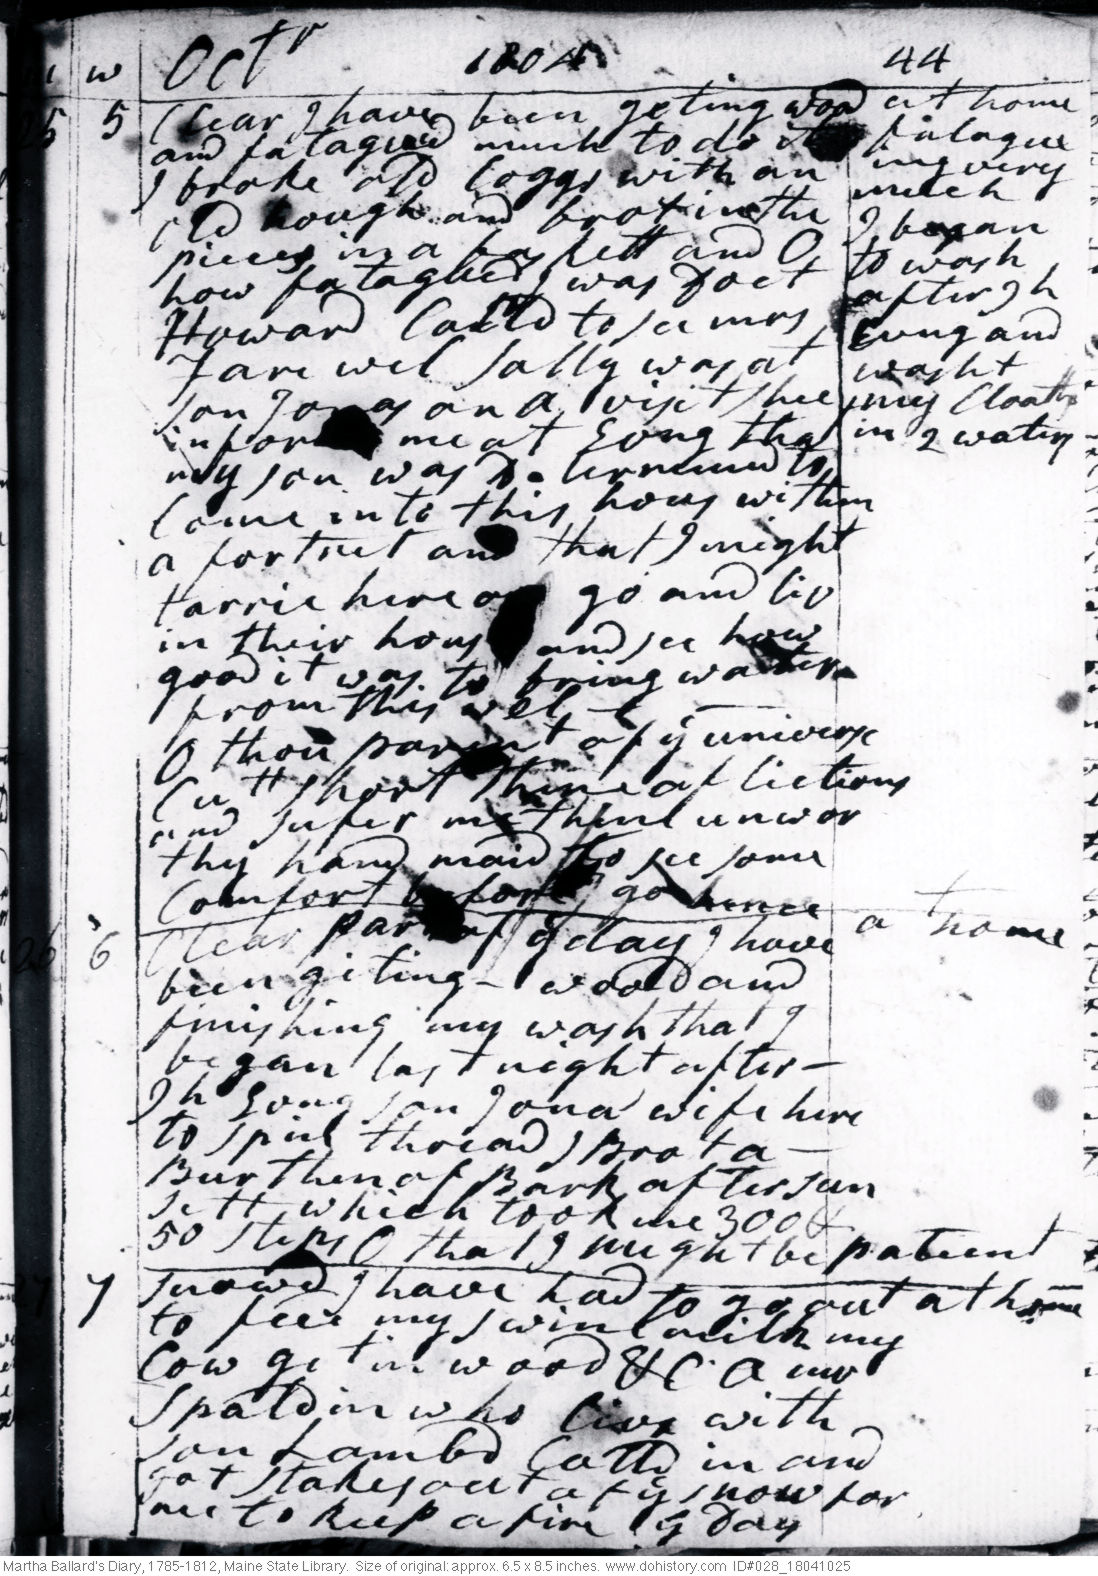 m w Octr 1804 44
25 5 Clear I have been geting wood
and fatagued much to do it
I broke old Loggs with an
old hough and brot in the
pieces in a baskett and O
how fatagued I was Doct
Howard Calld to see mrs
Farewel Sally was at
son Jonas on a visit shee
inform me at Evng that
my son was Determined to
Come into this hous within
a fortnit and that I might
tarrie here or go and liv
in their hous and see how
good it was to bring water
from this well
O thou parent of ye univers
Cutt short thine aflictions
and sufer me thine unwor
thy hand maid to see some
Comfort before I go hence
at home
fatague
ing very
much
I began
to wash
after 7 h
Evng and
washt
my Cloaths
in 2 waters
26 6 Clear part of ye day I have
been geting wood and
finishing my wash that I
began last night after
7 h Evng son Jona wife here
to spin thread I Brot a
Burthen of Bark after sun
sett which took me 300 &
50 steps O that I might be patient
a home
27 7 snowd I have had to go out at home
to feed my swine milk my
Cow get in wood &C. A mr
Spaldin who livs with
son Lambd Calld in and
got stakes out of ye snow for
me to keep a fire ye Day
Martha Ballard's Diary, 1785-1812, Maine State Library. Size of original: approx. 6.5 x 8.5 inches. www.dohistory.com ID#028_18041025